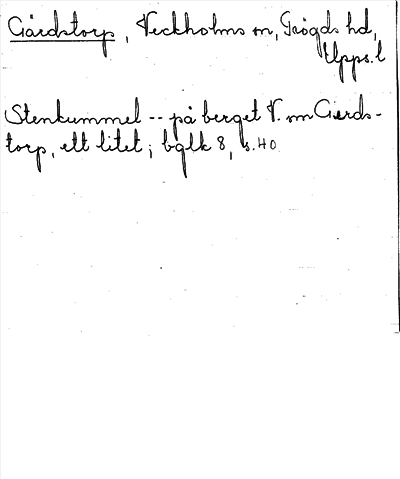 Gärdstorp, Veckholms sn, Trögds hd,
Upps. l
Stenkummel -- på berget V. om Gärds-
torp, ett litet; bglk 8, s. 40